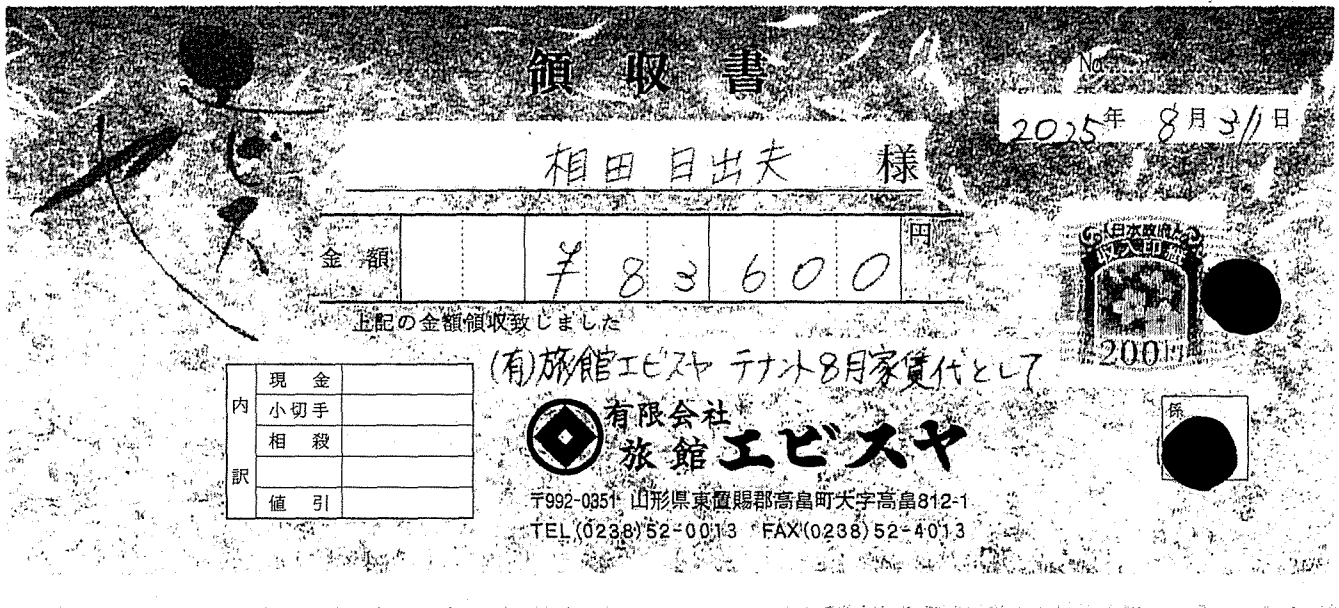 領収書
No.
2025年 8月31日
相田 日出夫 様
金額 ¥83600円
上記の金額領収致しました
(有)旅館エビスヤ テナント8月家賃代として
日本政府
収入印紙
200円
内訳
現金
小切手
相殺
値引
有限会社
旅館 エビスヤ
〒992-0351 山形県東置賜郡高畠町大字高畠812-1
TEL(0238)52-0013 FAX(0238)52-4013
係